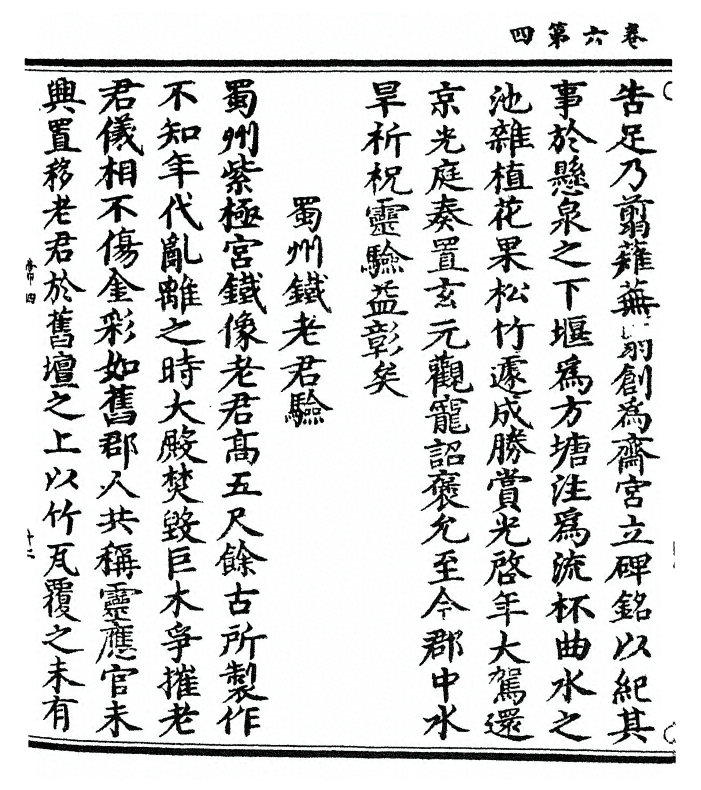 卷六第四
告足乃翦薙蕪穢創為齋宮立碑銘以紀其
事於懸泉之下堰爲方塘注爲流杯曲水之
池雜植花果松竹遽成勝賞光啓年大駕還
京光庭奏置玄元觀寵詔褒允至今郡中水
旱祈祝靈驗益彰矣
蜀州鐵老君驗
蜀州紫極宮鐵像老君高五尺餘古所製作
不知年代亂離之時大殿焚毀巨木爭摧老
君儀相不傷金彩如舊郡人共稱靈應官未
興置移老君於舊壇之上以竹瓦覆之未有
十二